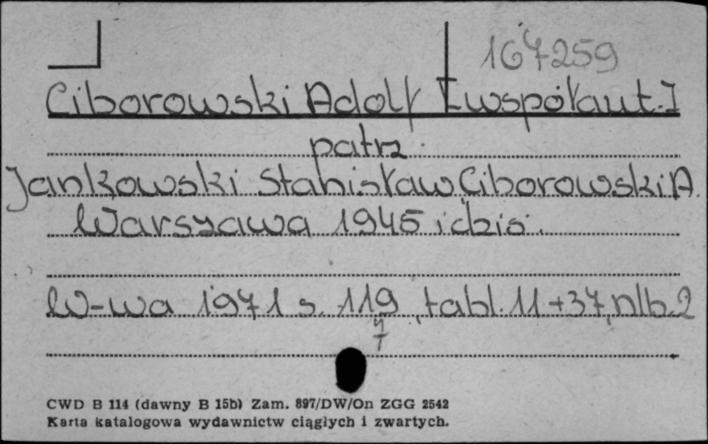 167259
Ciborowski Adolf [współaut.]
patrz
Jankowski Stanisław, Ciborowski A.
Warszawa 1945 i dziś.
W-wa 1971 s. 119, tabl. 11+37, nlb. 2
7
CWD B 114 (dawny B 15b) Zam. 897/DW/On ZGG 2542
Karta katalogowa wydawnictw ciągłych i zwartych.